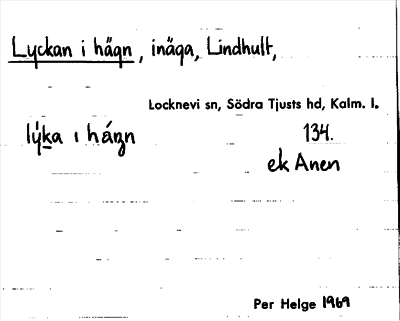 Lyckan i hägn, inäga, Lindhult,
Locknevi sn, Södra Tjusts hd, Kalm. l.
lýka ı háŋn
134.
ek Anen
Per Helge 1969